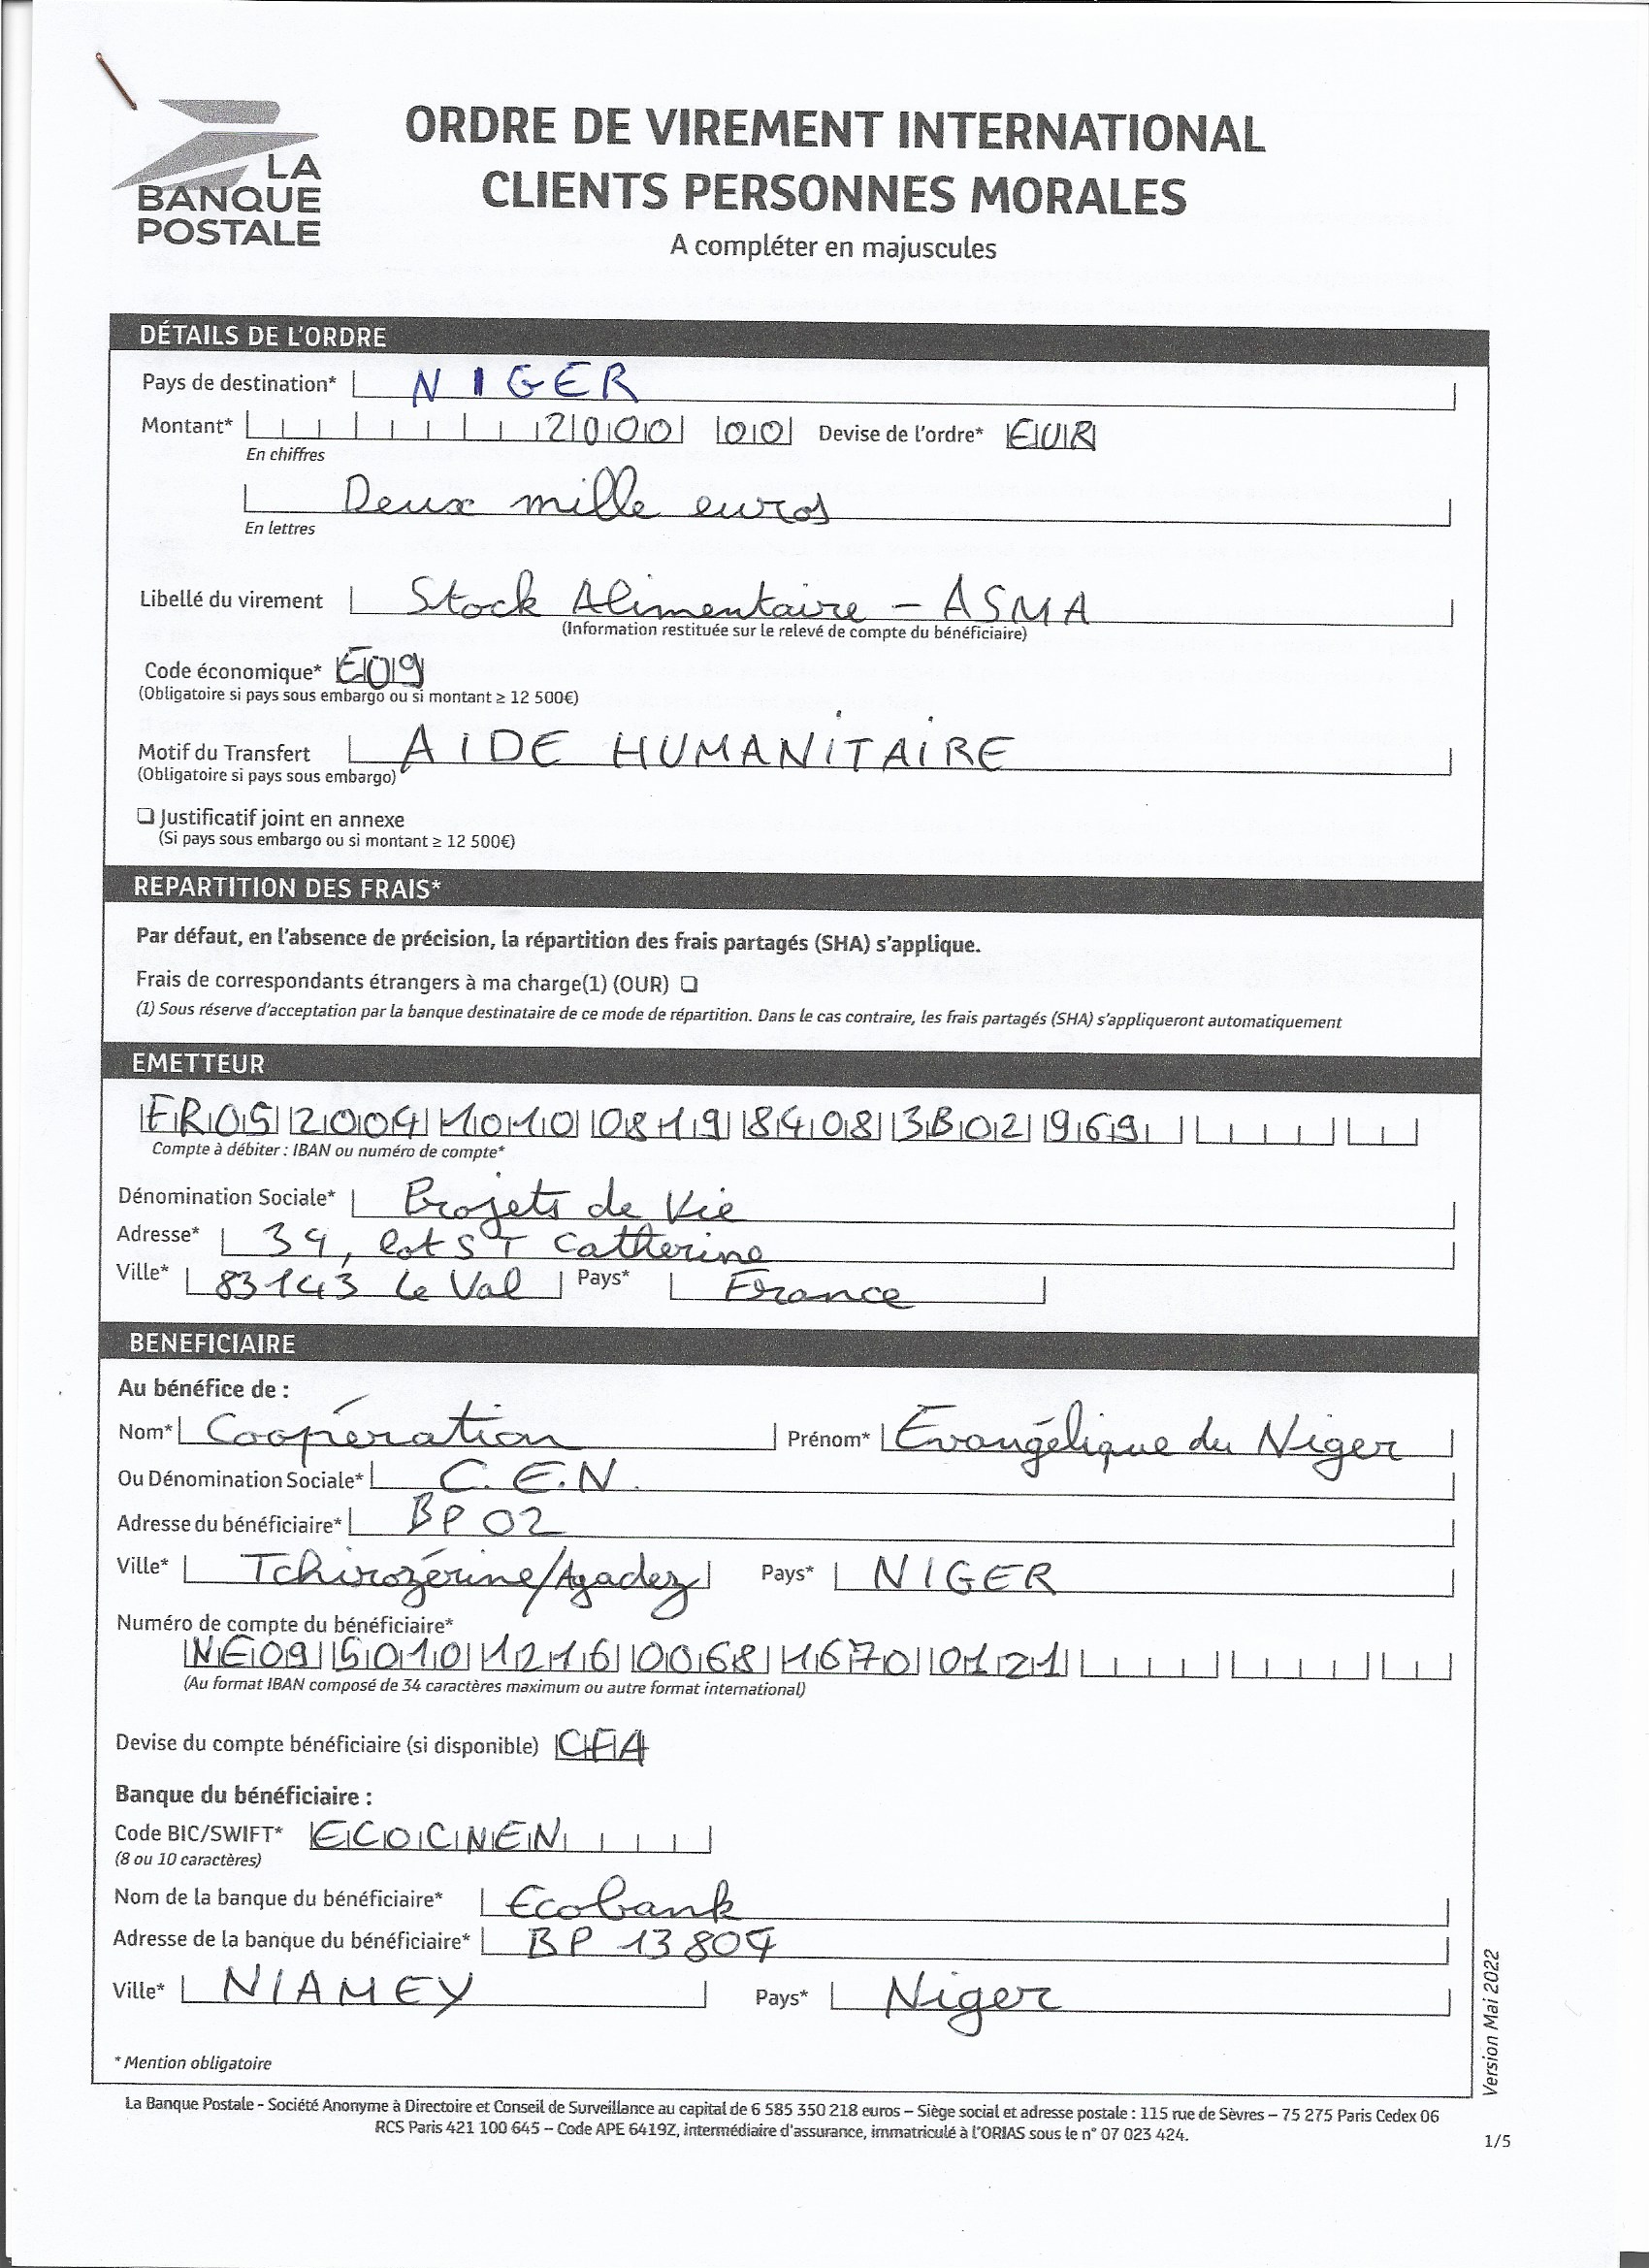 LA
BANQUE
POSTALE
ORDRE DE VIREMENT INTERNATIONAL
CLIENTS PERSONNES MORALES
A compléter en majuscules
DÉTAILS DE L'ORDRE
Pays de destination* NIGER
Montant* 2000 00 Devise de l'ordre* EUR
En chiffres
Deux mille euros
En lettres
Libellé du virement Stock Alimentaire - ASMA
(Information restituée sur le relevé de compte du bénéficiaire)
Code économique* E09
(Obligatoire si pays sous embargo ou si montant ≥ 12 500€)
Motif du Transfert AIDE HUMANITAIRE
(Obligatoire si pays sous embargo)
❑ Justificatif joint en annexe
(Si pays sous embargo ou si montant ≥ 12 500€)
REPARTITION DES FRAIS*
Par défaut, en l'absence de précision, la répartition des frais partagés (SHA) s'applique.
Frais de correspondants étrangers à ma charge(1) (OUR) ❑
(1) Sous réserve d'acceptation par la banque destinataire de ce mode de répartition. Dans le cas contraire, les frais partagés (SHA) s'appliqueront automatiquement
EMETTEUR
FR05 2004 1010 0819 8408 3B02 969
Compte à débiter : IBAN ou numéro de compte*
Dénomination Sociale* Projets de Vie
Adresse* 34, lot ST Catherine
Ville* 83143 Le Val Pays* France
BENEFICIAIRE
Au bénéfice de :
Nom* Coopération Prénom* Evangélique du Niger
Ou Dénomination Sociale* C.E.N.
Adresse du bénéficiaire* BP 02
Ville* Tchirozérine/Agadez Pays* NIGER
Numéro de compte du bénéficiaire*
NE09 5010 1216 0068 1670 0121
(Au format IBAN composé de 34 caractères maximum ou autre format international)
Devise du compte bénéficiaire (si disponible) CFA
Banque du bénéficiaire :
Code BIC/SWIFT* ECOCNEN
(8 ou 10 caractères)
Nom de la banque du bénéficiaire* Ecobank
Adresse de la banque du bénéficiaire* BP 13804
Ville* NIAMEY Pays* Niger
* Mention obligatoire
Version Mai 2022
La Banque Postale - Société Anonyme à Directoire et Conseil de Surveillance au capital de 6 585 350 218 euros – Siège social et adresse postale : 115 rue de Sèvres – 75 275 Paris Cedex 06
RCS Paris 421 100 645 – Code APE 6419Z, intermédiaire d'assurance, immatriculé à l'ORIAS sous le n° 07 023 424.
1/5